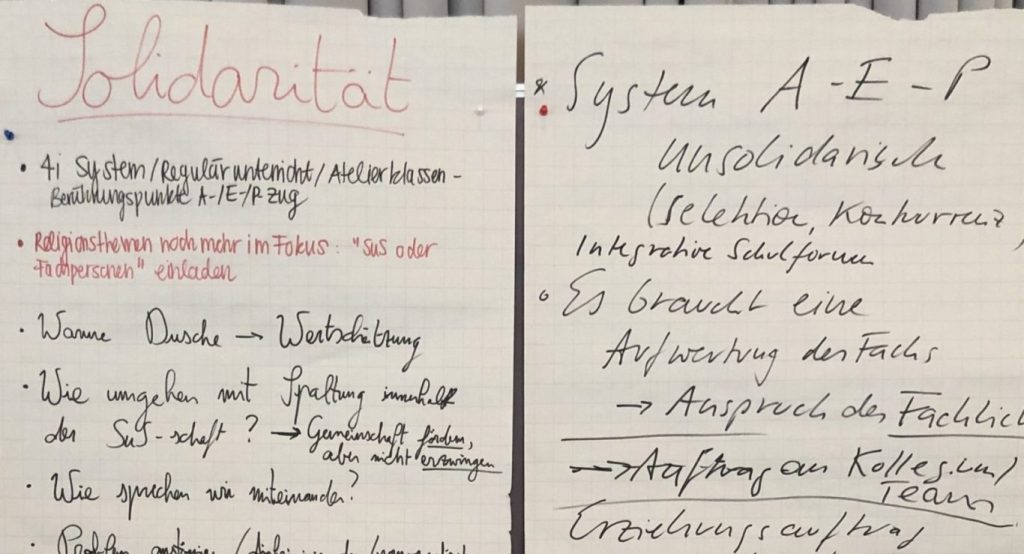 Solidarität
• 4i System/Regulärunterricht/Atelierklassen -
Berührungspunkte A-/E-/P Zug
• Religionsthemen noch mehr im Fokus: "SuS oder
Fachpersonen" einladen
• Warme Dusche → Wertschätzung
• Wie umgehen mit Spaltung innerhalb
der SuS-schaft? → Gemeinschaft fördern,
aber nicht erzwingen
• Wie sprechen wir miteinander?
• Problem
* System A-E-P
unsolidarisch
(Selektion, Konkurrenz,
Integrative Schulformen
° Es braucht eine
Aufwertung des Fachs
→ Anspruch der Fachlich
→ Auftrag an Kollegium/
Team
Erziehungsauftrag